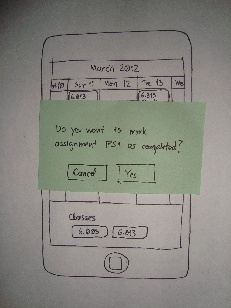 March 2012
Sun 11 Mon 12 Tue 13 We
6.813 6.813
Do you want to mark
assignment PS1 as completed?
Cancel Yes
Classes
6.005 6.813